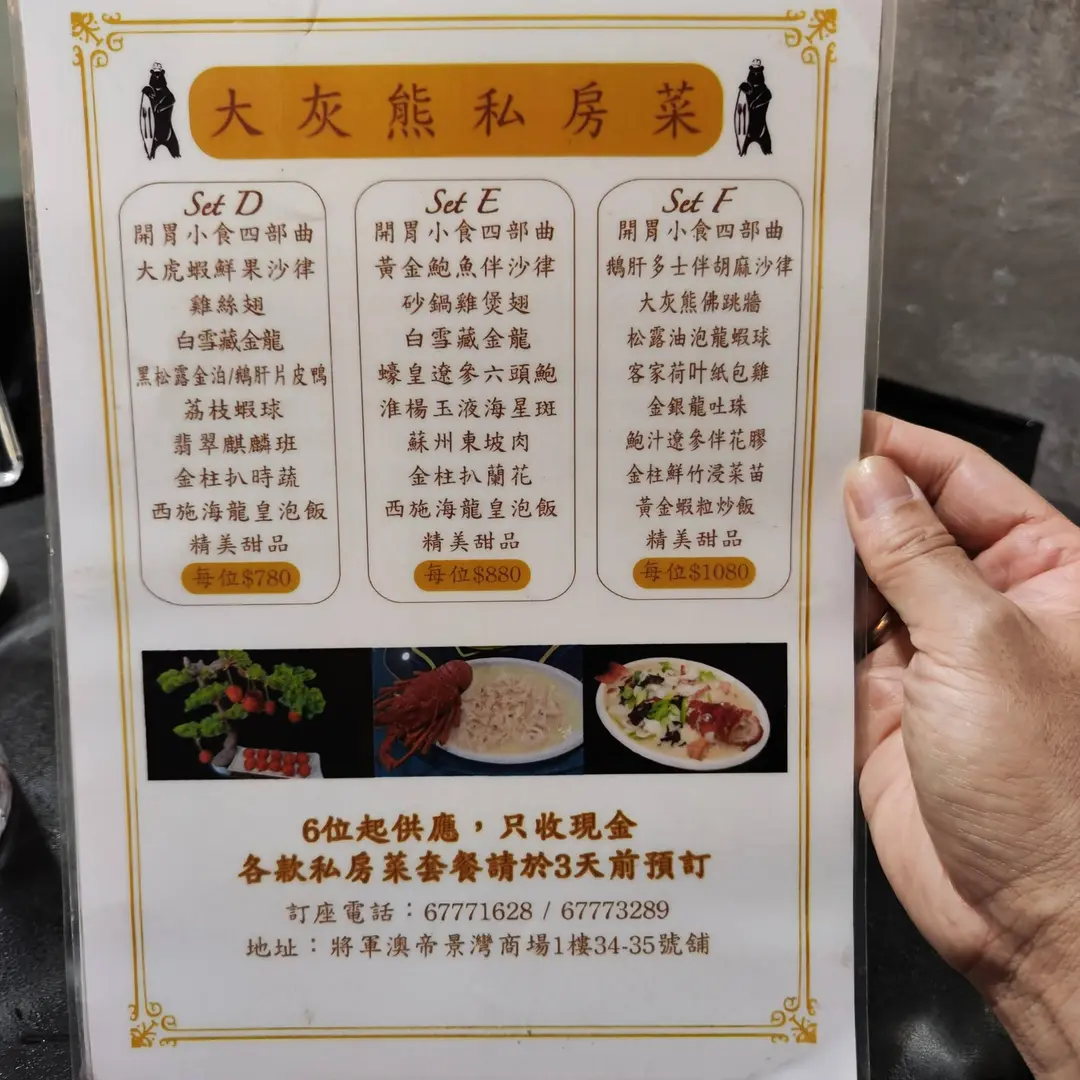 大灰熊私房菜
Set D
開胃小食四部曲
大虎蝦鮮果沙律
雞絲翅
白雪藏金龍
黑松露金泊/鵝肝片皮鴨
荔枝蝦球
翡翠麒麟班
金柱扒時蔬
西施海龍皇泡飯
精美甜品
每位$780
Set E
開胃小食四部曲
黃金鮑魚伴沙律
砂鍋雞煲翅
白雪藏金龍
蠔皇遼參六頭鮑
淮楊玉液海星斑
蘇州東坡肉
金柱扒蘭花
西施海龍皇泡飯
精美甜品
每位$880
Set F
開胃小食四部曲
鵝肝多士伴胡麻沙律
大灰熊佛跳牆
松露油泡龍蝦球
客家荷叶紙包雞
金銀龍吐珠
鮑汁遼參伴花膠
金柱鮮竹浸菜苗
黃金蝦粒炒飯
精美甜品
每位$1080
6位起供應，只收現金
各款私房菜套餐請於3天前預訂
訂座電話：67771628 / 67773289
地址：將軍澳帝景灣商場1樓34-35號舖